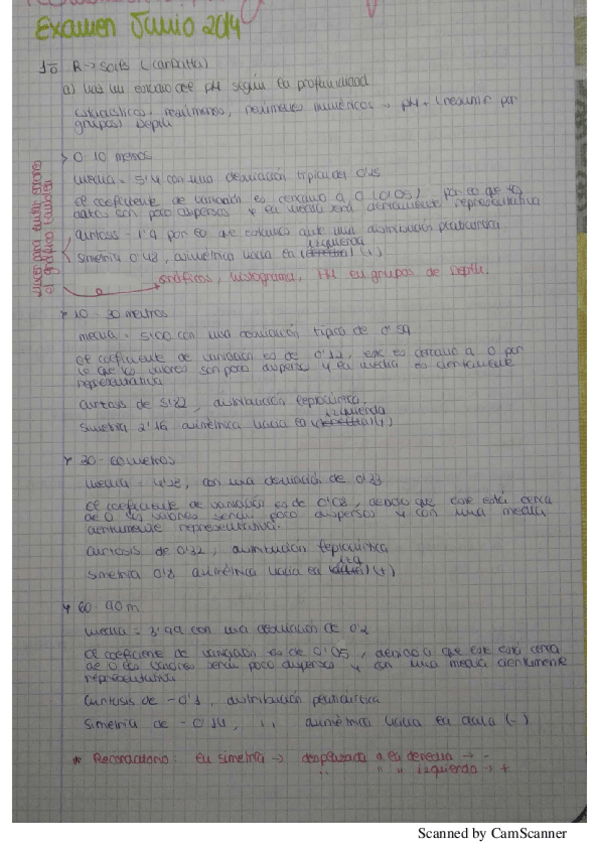 Examen Junio 2014
1º R → Soils (carpeta)
a) Haz un estudio del pH según la profundidad
Estadísticos, resúmenes, resúmenes numéricos → pH + (resumir por
grupos) Depth
> 0-10 metros
media = 5'4 con una desviación típica del 0'25
el coeficiente de variación es cercano a 0 (0'05), por lo que los
datos son poco dispersos y la media será cientamente representativa
curtosis - 1'4 por lo que estamos ante una distribución platicúrtica
simetría 0'43, asimétrica hacia la izquierda (+)
el gráfico también
Gráficos, histograma, pH en grupos de Depth.
> 10-30 metros
media = 5'00 con una desviación típica de 0'59
el coeficiente de variación es de 0'12, este es cercano a 0 por
lo que los valores son poco dispersos y la media es cientamente
representativa
curtosis de 5'22, distribución leptocúrtica.
simetría 2'16 asimétrica hacia la izquierda (+)
> 30-60 metros
media = con una desviación de 0'33
el coeficiente de variación es de 0'08, debido que este está cerca
de 0 los valores serán poco dispersos y con una media
cientamente representativa.
curtosis de 0'32, distribución leptocúrtica
simetría 0'8 asimétrica hacia la izq (+)
> 60-90 m
media = 3'99 con una desviación de 0'2
el coeficiente de variación es de 0'05, debido a que este está cerca
de 0 los valores serán poco dispersos y con una media cientamente
representativa
Curtosis de -0'1, distribución platicúrtica
Simetría de -0'14, asimétrica hacia la dcha (-)
* Recordatorio: en simetría → desplazada a la derecha → -
" " " izquierda → +
Scanned by CamScanner